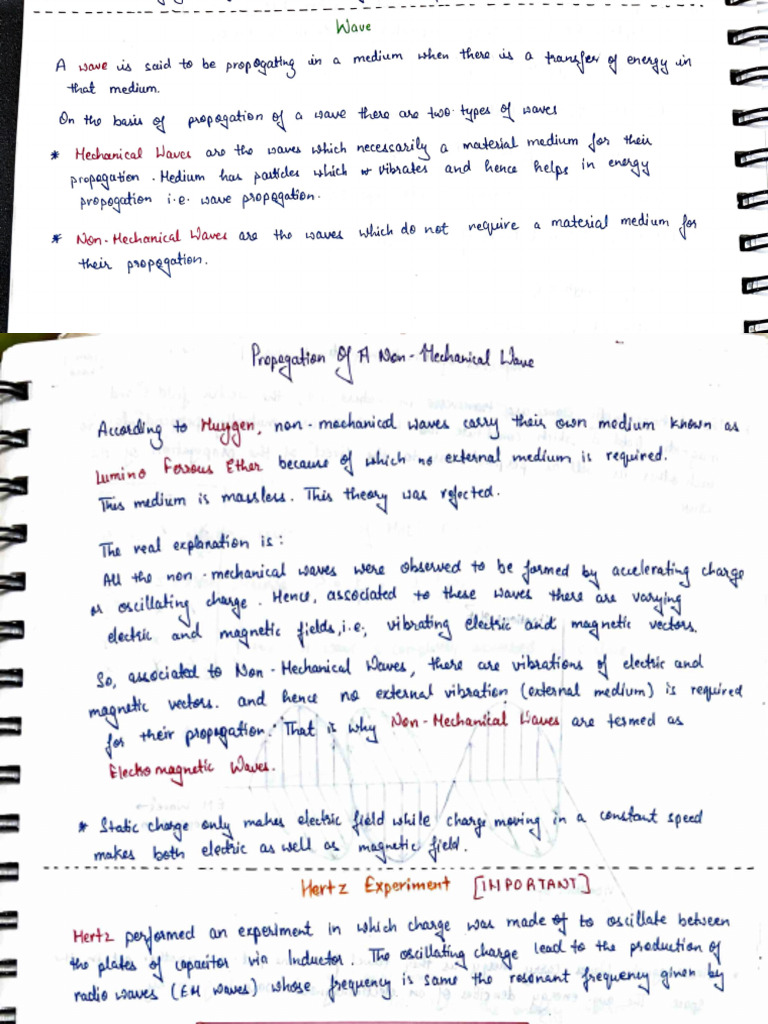 Wave
A wave is said to be propogating in a medium when there is a transfer of energy in
that medium.
On the basis of propogation of a wave there are two types of waves
* Mechanical Waves are the waves which necessarily a material medium for their
propogation. Medium has particles which vibrates and hence helps in energy
propogation i.e. wave propogation.
* Non-Mechanical Waves are the waves which do not require a material medium for
their propogation.
Propogation Of A Non-Mechanical Wave
According to Huygen, non-mechanical waves carry their own medium known as
Lumino Ferrous Ether because of which no external medium is required.
This medium is massless. This theory was rejected.
The real explanation is:
All the non-mechanical waves were observed to be formed by accelerating charge
or oscillating charge. Hence, associated to these waves there are varying
electric and magnetic fields, i.e, vibrating electric and magnetic vectors.
So, associated to Non-Mechanical Waves, there are vibrations of electric and
magnetic vectors. and hence no external vibration (external medium) is required
for their propogation. That is why Non-Mechanical Waves are termed as
Electromagnetic Waves.
* Static charge only makes electric field while charge moving in a constant speed
makes both electric as well as magnetic field.
Hertz Experiment [IMPORTANT]
Hertz performed an experiment in which charge was made of to oscillate between
the plates of capacitor via Inductor. The oscillating charge lead to the production of
radio waves (EM waves) whose frequency is same the resonant frequency given by